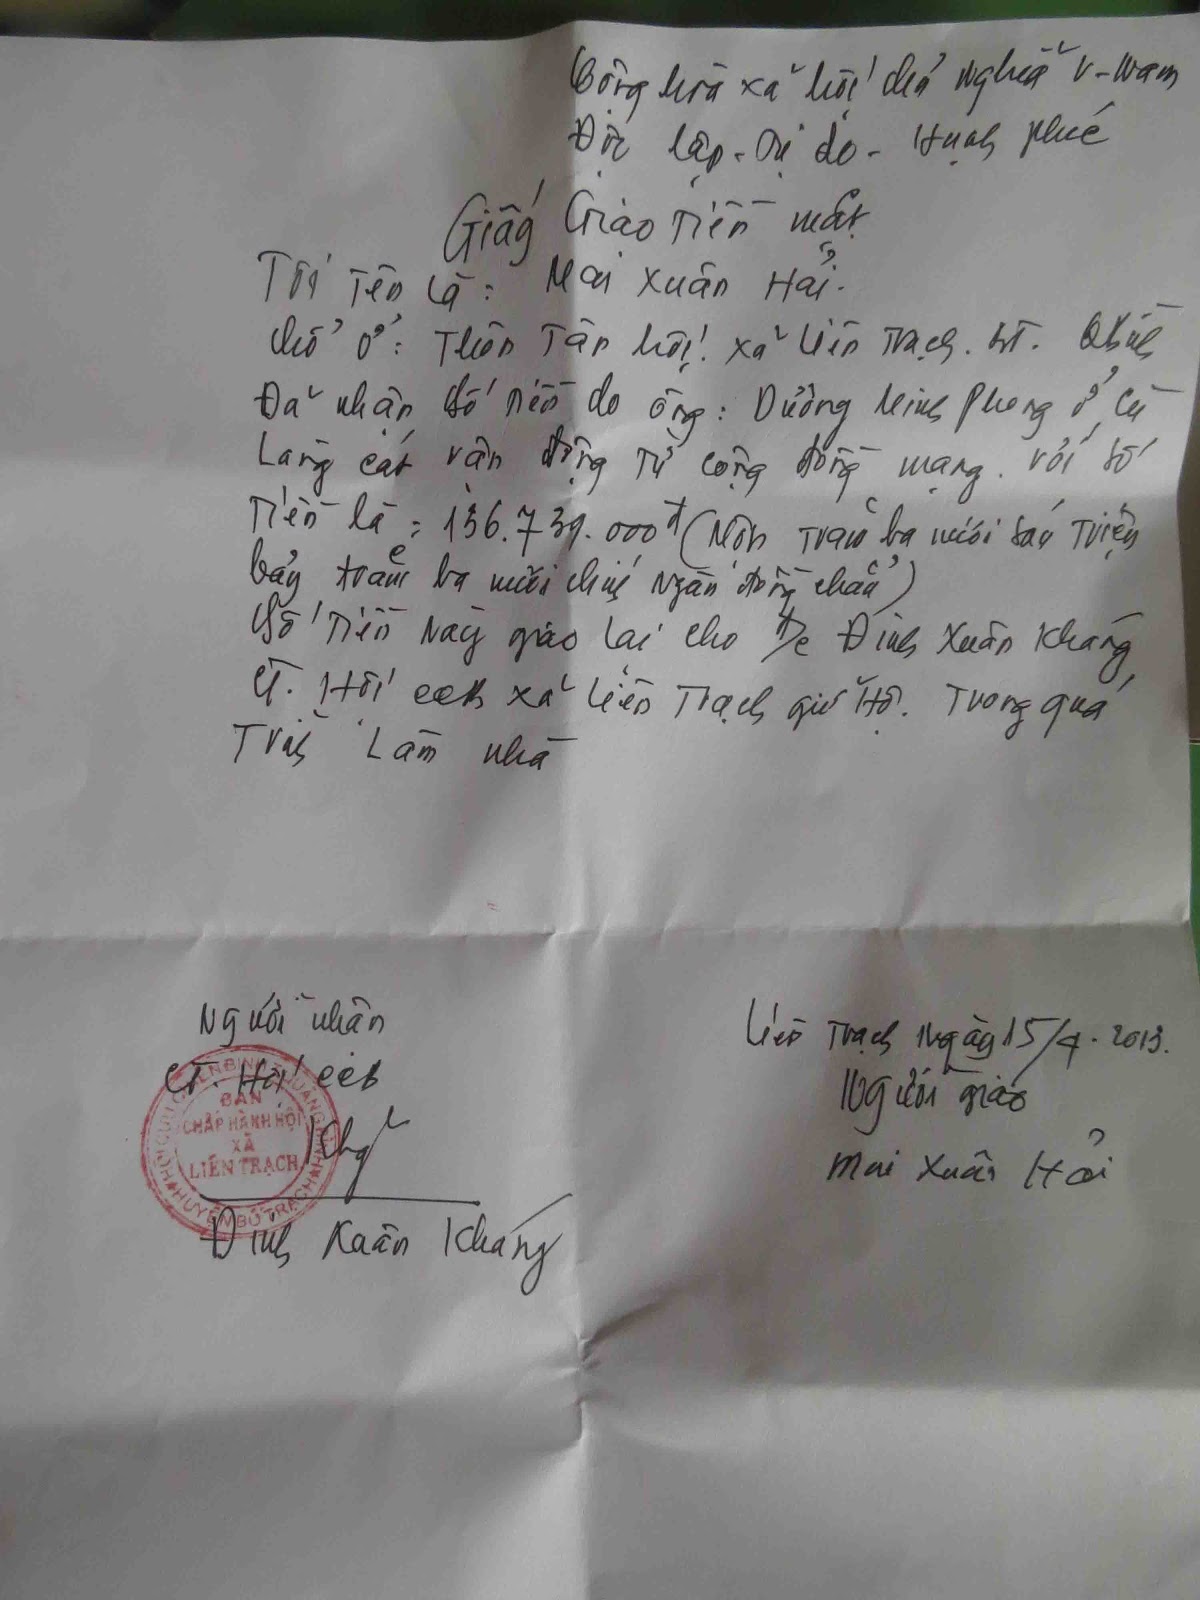 Cộng hoà xã hội chủ nghĩa V-Nam
Độc lập - Tự do - Hạnh phúc
Giấy Giao Tiền mặt
Tôi Tên Là: Mai Xuân Hải.
Chổ ở: Thôn Tân hội. xã Liên Trạch. BT. QBình
Đã nhận Số Tiền do ông: Dương Minh Phong ở Cù
Lạng cát vận động Từ cộng đồng mạng. Với số
Tiền là: 136.739.000đ (Một Trăm ba mươi Sáu Triệu
bảy trăm ba mươi chín Ngàn đồng chẵn)
Số Tiền Này giao Lại cho đ/c Đinh Xuân Kháng
CT. Hội ccb xã Liên Trạch giữ Hộ. Trong quá
Trình Làm nhà
Người nhận
CT. Hội ccb
HỘI CỰU CHIẾN BINH T. QUẢNG BÌNH
BAN
CHẤP HÀNH HỘI
XÃ
LIÊN TRẠCH
HUYỆN BỐ TRẠCH
Đinh Xuân Kháng
Liên Trạch Ngày 15/4. 2013.
Người giao
Mai Xuân Hải